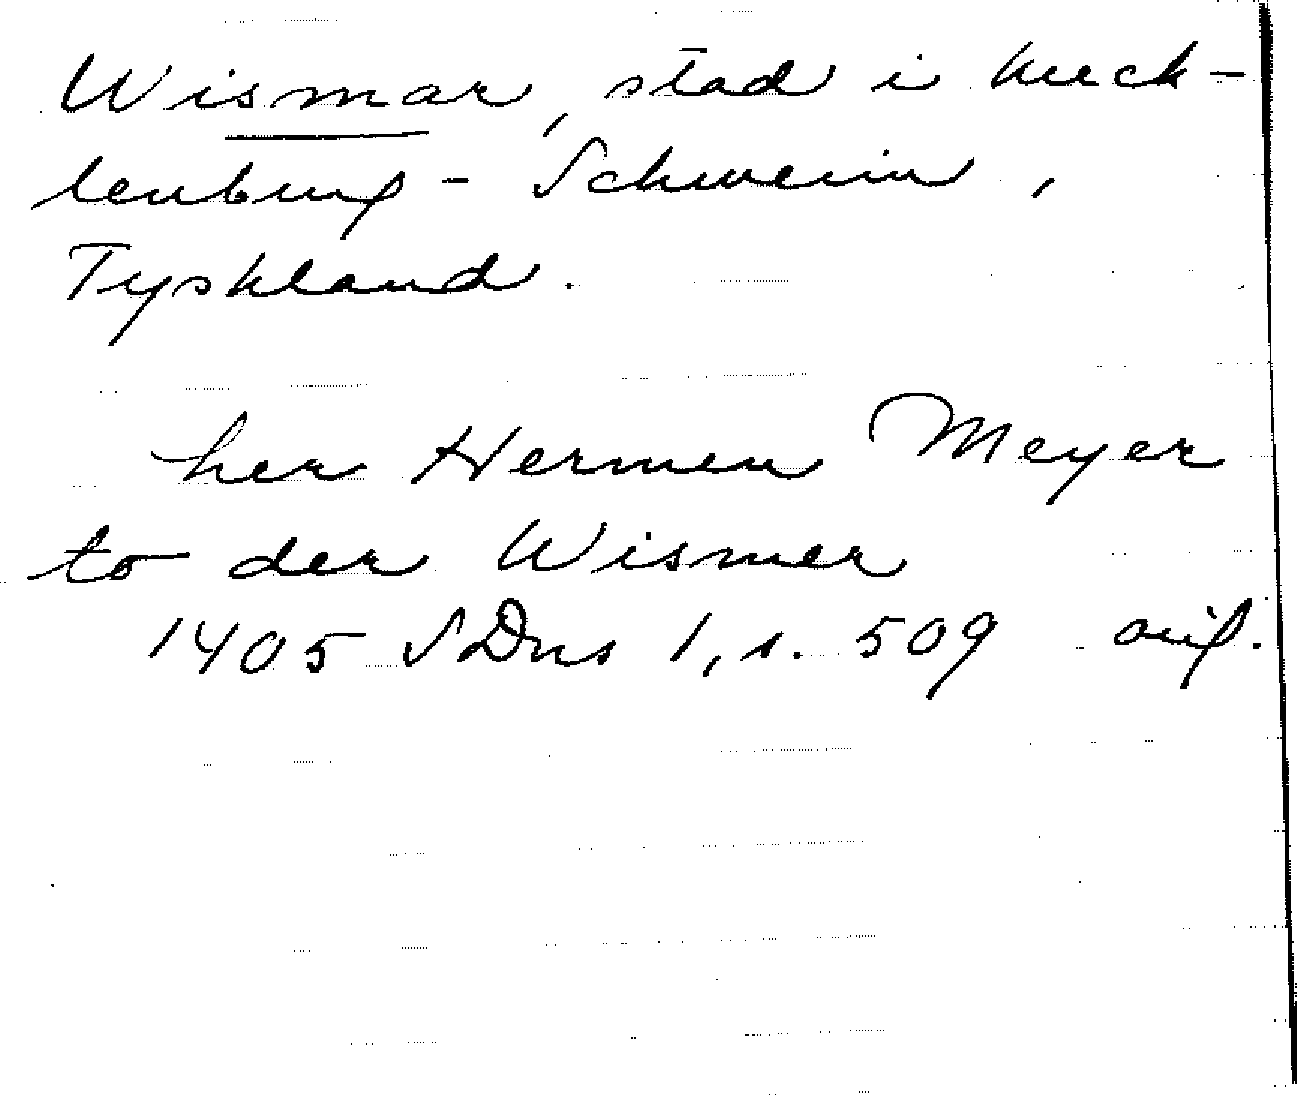 Wismar, stad i Meck-
lenburg - Schwerin,
Tyskland.
her Hermen Meyer
to der Wismer
1405 SDns 1, s. 509 avs.